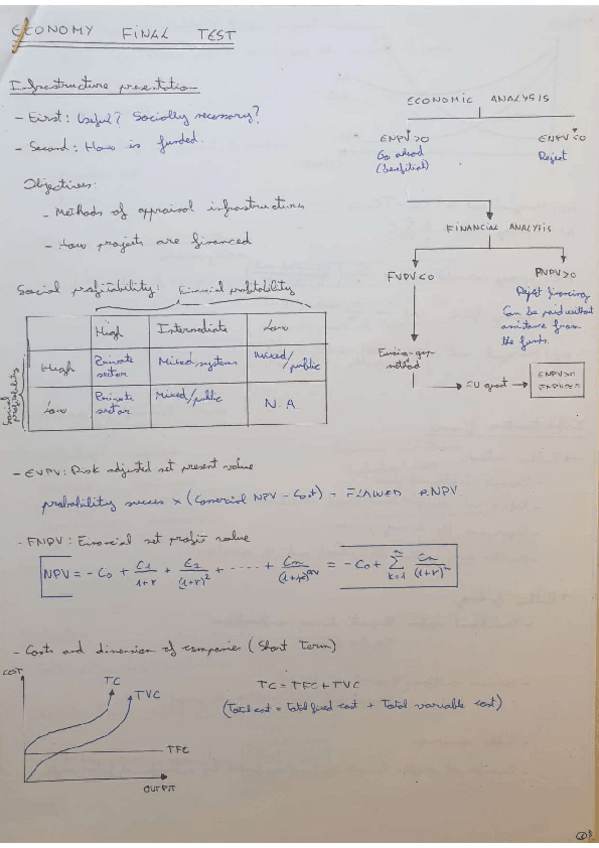 ECONOMY FINAL TEST
Infrastructure presentation
- First: Useful? Socially necessary?
- Second: How is funded.
Objectives:
- Methods of appraisal infrastructures
- How projects are financed
ECONOMIC ANALYSIS
ENPV>0
ENPV<0
Go ahead
(beneficial)
Reject
FINANCIAL ANALYSIS
FNPV<0
FNPV>0
Reject financing
Can be paid without
assistance from
the funds.
Financing-gap
method
EU grant
Social profitability: Financial profitability
High Intermediate Low
Social profitability
High Private sector Mixed systems Mixed/public
Low Private sector Mixed/public N.A
- ENPV: Risk adjusted net present value
probability succes x (Comercial NPV - Cost) = FLAWED RNPV
- FNPV: Financial net profit value
NPV = -C0 + C1/1+r + C2/(1+r)² + ---- + Cn/(1+r)ⁿ = -C0 + Σ k=1 n Cn/(1+r)ⁿ
- Costs and dimension of companies (Short Term)
COST
TC
TVC
TFC
OUTPUT
TC = TFC + TVC
(Total cost = Total fixed cost + Total variable cost)